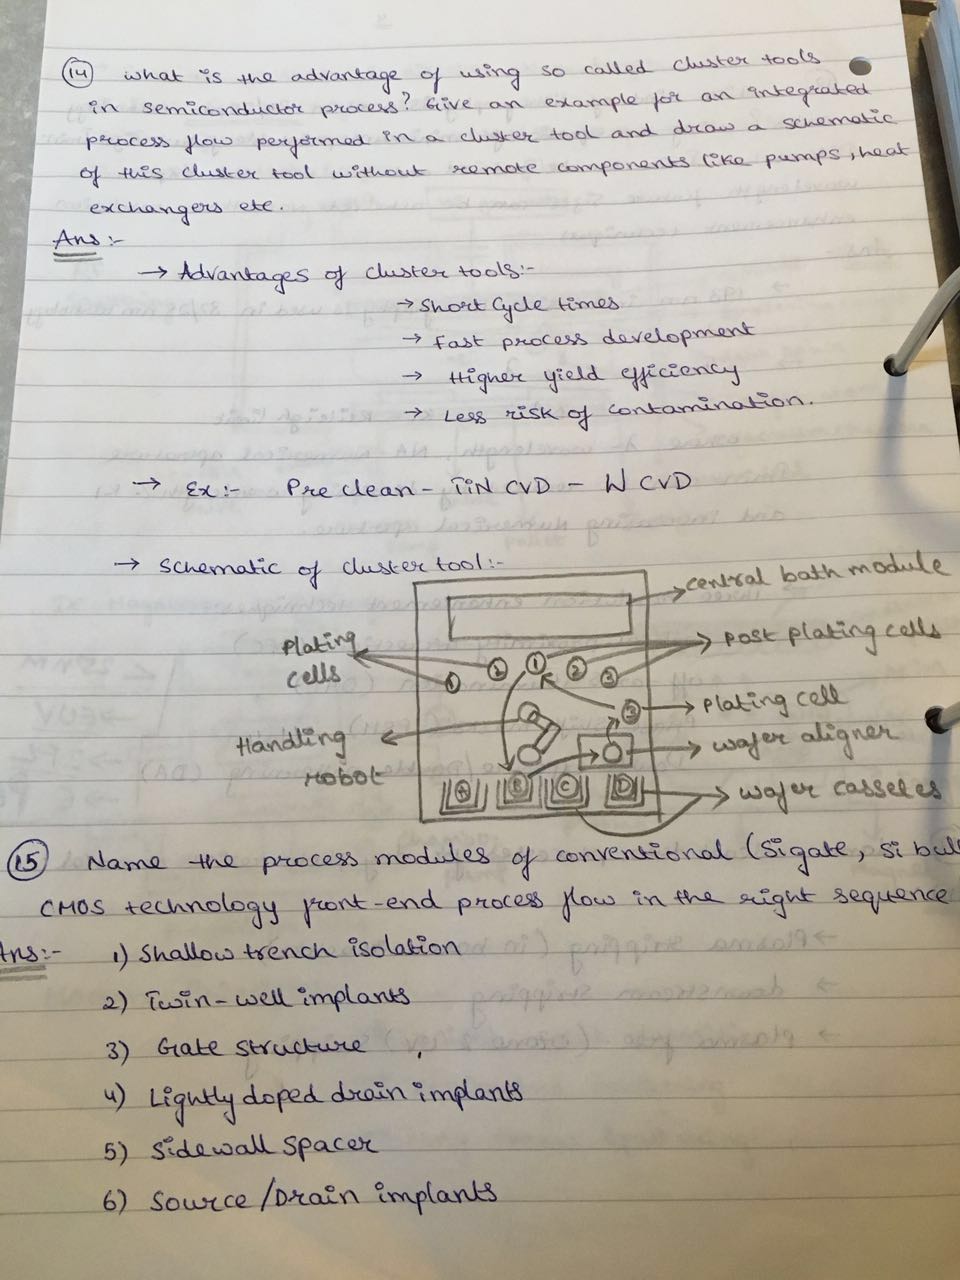 14 What is the advantage of using so called cluster tools
in semiconductor process? Give an example for an integrated
process flow performed in a cluster tool and draw a schematic
of this cluster tool without remote components like pumps, heat
exchangers etc.
Ans:-
→ Advantages of cluster tools:-
→ Short Cycle times
→ Fast process development
→ Higher yield efficiency
→ Less risk of contamination.
→ Ex:- Pre clean - TiN CVD - W CVD
→ Schematic of cluster tool:-
→ central bath module
Plating cells
→ Post plating cells
1 2 1 2 3
3 → Plating cell
Handling robot
→ wafer aligner
A B C D → wafer casseles
15 Name the process modules of conventional (Si gate, Si bul
CMOS technology front-end process flow in the right sequence
Ans:- 1) Shallow trench isolation
2) Twin-well implants
3) Gate structure
4) Lightly doped drain implants
5) Sidewall spacer
6) Source/Drain implants